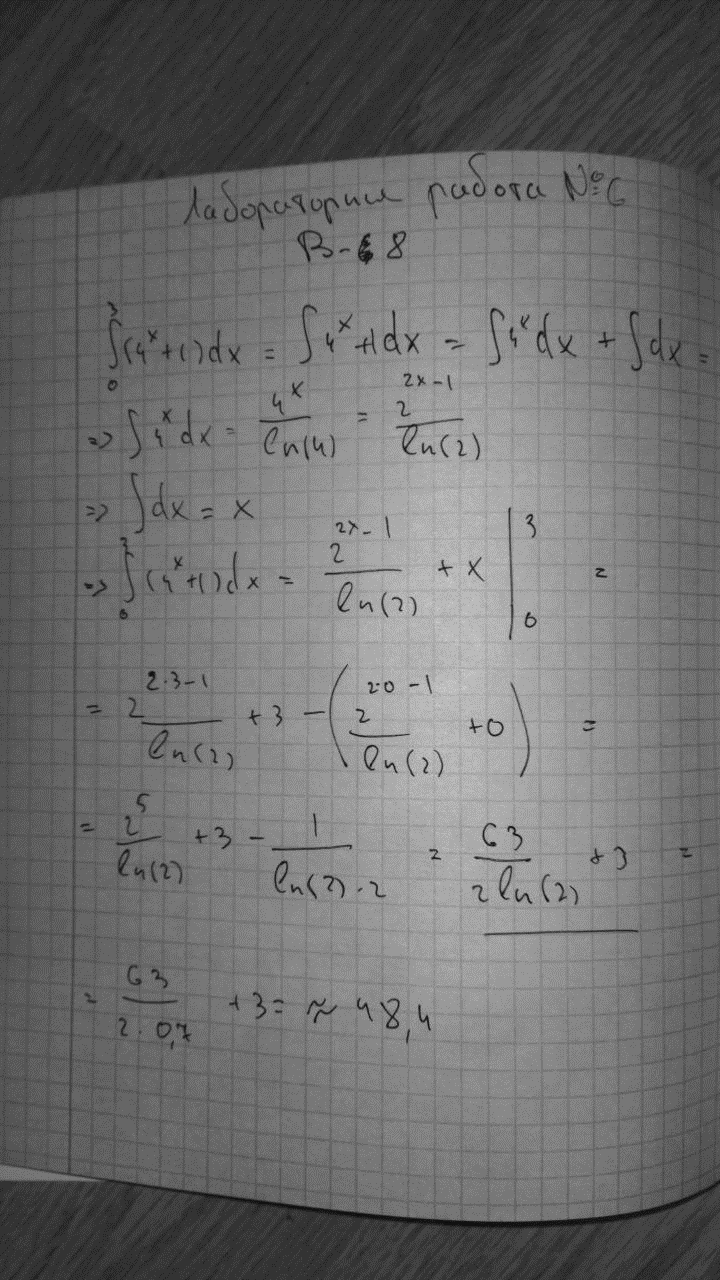 Лабораторная работа №6
В-8
∫₀³(4ˣ+1)dx = ∫4ˣ+1dx = ∫4ˣdx + ∫dx =
=> ∫4ˣdx = 4ˣ/ln(4) = 2^(2x-1)/ln(2)
=> ∫dx = x
=> ∫₀³(4ˣ+1)dx = 2^(2x-1)/ln(2) + x |₀³ =
= 2^(2·3-1)/ln(2) + 3 - (2^(2·0-1)/ln(2) + 0) =
= 2⁵/ln(2) + 3 - 1/(ln(2)·2) = 63/(2ln(2)) + 3 =
= 63/(2·0,7) + 3 = ≈ 48,4